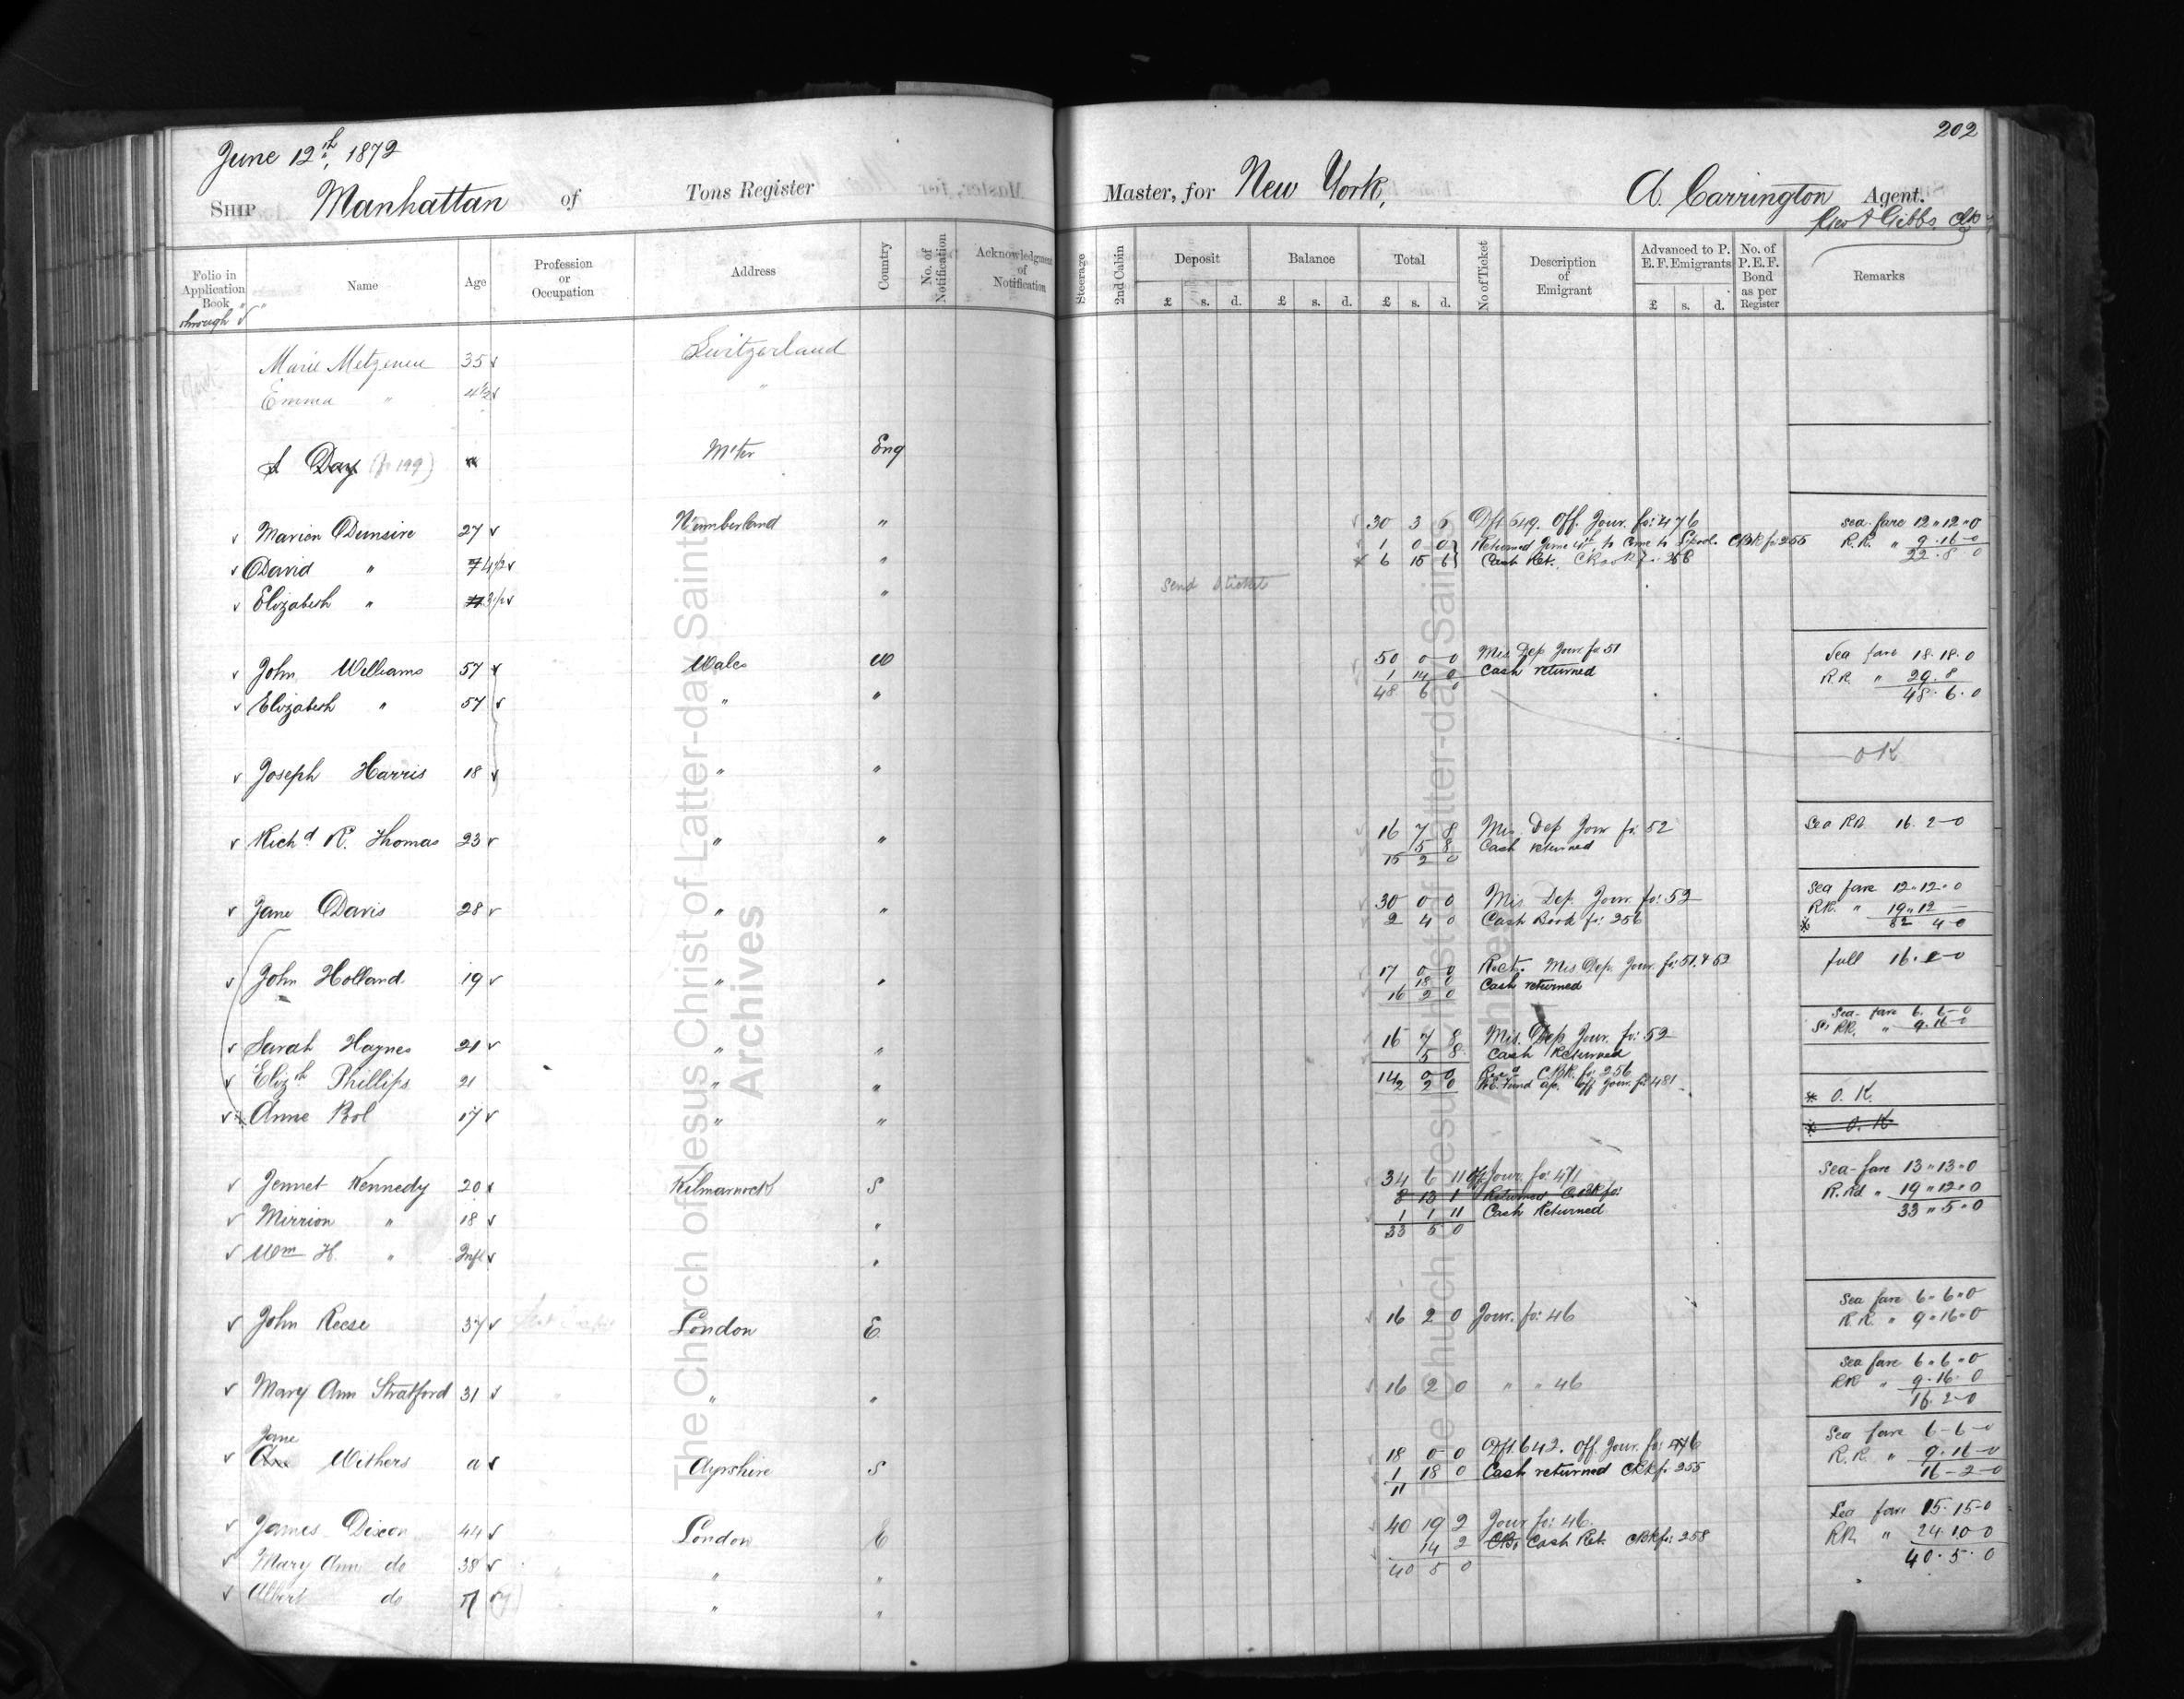 202
June 12th, 1872
Ship Manhattan of Tons Register Master, for New York, A. Carrington Agent.
Geo F Gibbs, Clk
Folio in Application Book Name Age Profession or Occupation Address Country No. of Notification Acknowledgment of Notification Steerage 2nd Cabin Deposit Balance Total No of Ticket Description of Emigrant Advanced to P. E. F. Emigrants No. of P.E.F. Bond as per Register Remarks
£ s. d. £ s. d. £ s. d. £ s. d.
through
Marie 35 Switzerland
Emma " 4½ "
Day (p 199) Eng
Marion Dunsire 27 " 30 3 6 Dft 649. Off. Jour. fo: 476 Sea fare 12 " 12 " 0
1 0 0 Returned June 4th to come to L'pool. CBk fo: 255 R.R. " 9.16-0
David " 4½ " 6 15 6 Cash Ret. 22.8 0
Elizabeth " " Send tickets
John Williams 57 Wales W 50 0-0 Mis Dep Jour fo 51 Sea fare 18.18.0
1 14 0 Cash returned R.R. " 29.8
Elizabeth " 57 " " 48 6 0 48.6.0
Joseph Harris 18 " " OK
Richd R. Thomas 23 " " 16 7 8 Mis Dep Jour fo: 52 Sea RR 16.2-0
5 8 Cash returned
15 2 0
Jane Davis 28 " " 30 0 0 Mis Dep. Jour fo: 52 Sea fare 12 " 12 " 0
2 4 0 Cash Book fo: 256 RR. " 19 " 12 -
32 4-0
John Holland 19 " " 17 0-0 Rect. Mis Dep. Jour. fo: 51.& 52 full
18 0 Cash returned
16 2 0
Sea fare 6. 6-0
RR. " 9.16-0
Sarah Haynes 21 " " 16 7 8 Mis. Dep Jour. fo: 52
5 8 Cash Returned
Elizth Phillips 21 " " 14 0-0 Recd CBk. fo: 256
2 2 0 off Jour. fo 481 * O. K.
Anne 17 " " * O. K
Jennet Kennedy 20 Kilmarnock S 34 6 11 Off Jour. fo: 471 Sea-fare 13 " 13 " 0
8 13 1 Returned C.Bk fo: R.Rd " 19 " 12 " 0
Mirrion " 18 " 1 1 11 Cash Returned 33 " 5 " 0
33 5 0
Wm H. " Inft "
John Reese 37 London E 16 2 0 Jour. fo: 46 Sea fare 6 " 6 " 0
R.R. " 9 " 16 " 0
Mary Ann Stratford 31 " " 16 2 0 " " 46 Sea fare 6 " 6 " 0
RR " 9.16. 0
16. 2-0
Jane
Ann Withers a Ayrshire S 18 0 0 Dft. 642. Off. Jour. fo: 476 Sea fare 6-6-0
1 18 0 Cash returned CBk fo: 255 R.R. " 9.16-0
11 16-2-0
James Dixon 44 London E 40 19 2 Jour fo: 46. Sea fare 15.15-0
14 2 Cash Ret. CBk fo: 258 RR " 24.10-0
Mary Ann do 38 " " 40 5 0 40.5.0
Albert do " "
The Church of Jesus Christ of Latter-day Saints
Archives
The Church of Jesus Christ of Latter-day Saints
Archives